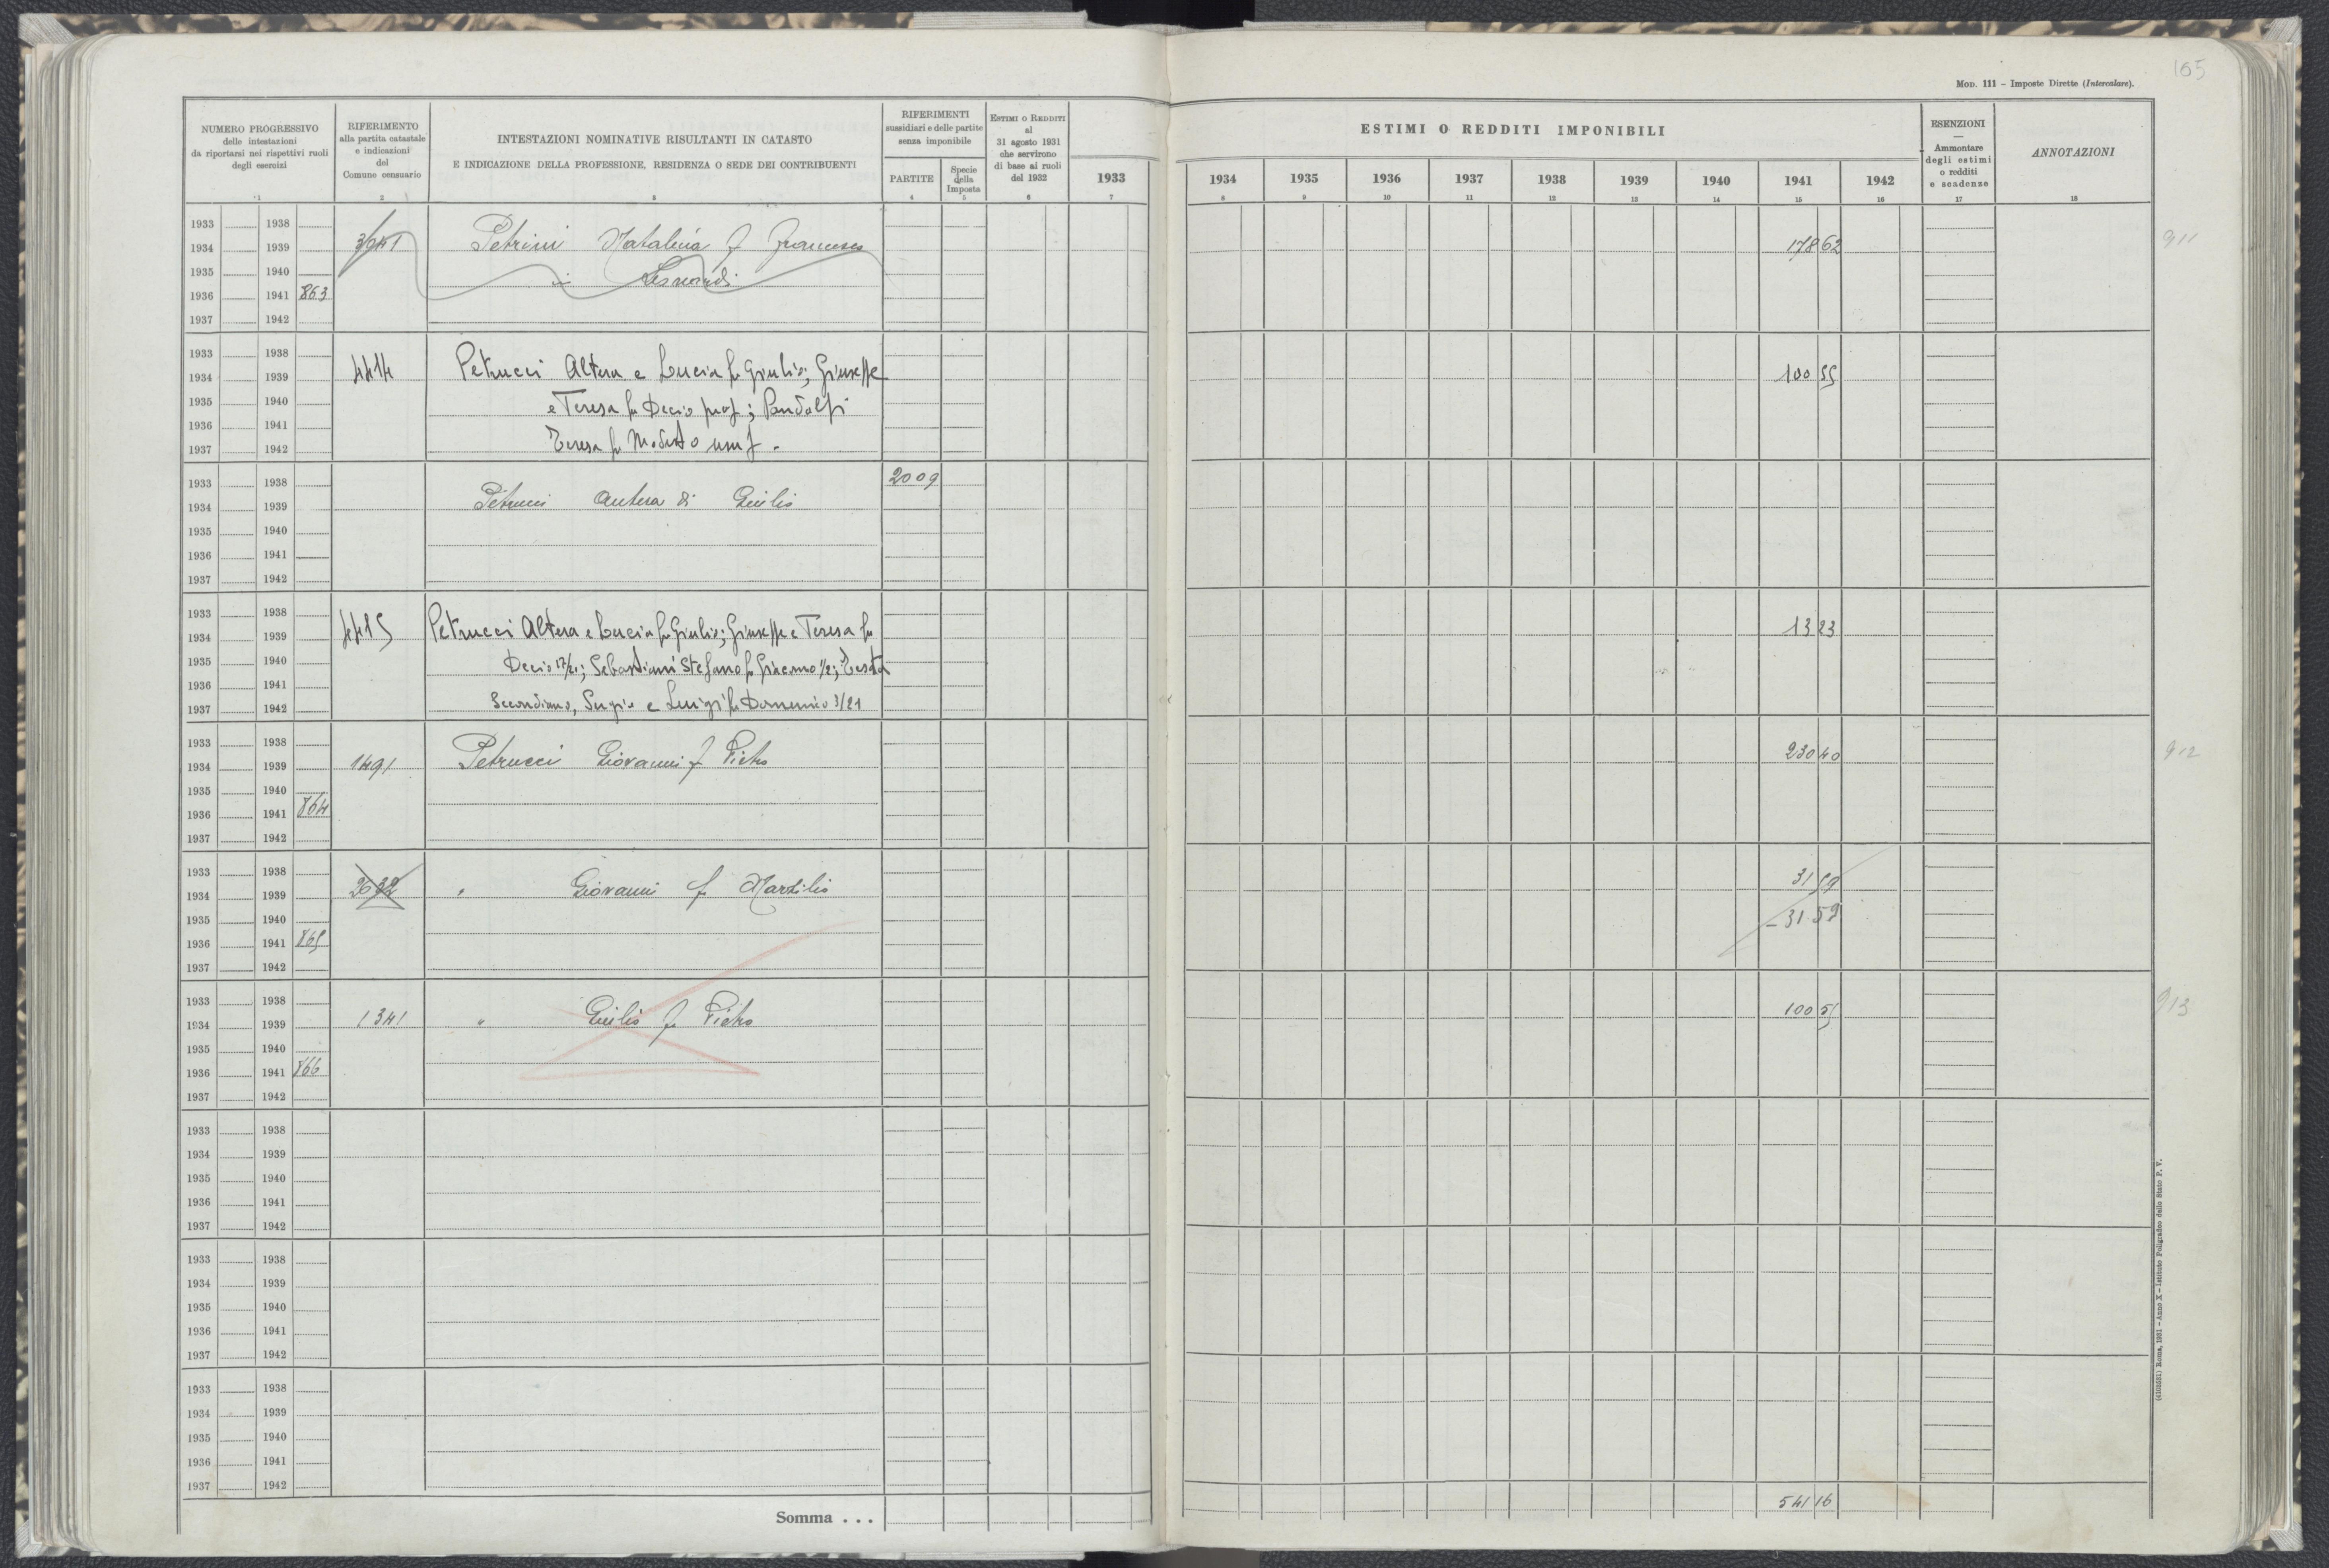 165
MOD. 111 - Imposte Dirette (Intercalare).
NUMERO PROGRESSIVO
delle intestazioni
da riportarsi nei rispettivi ruoli
degli esercizi
RIFERIMENTO
alla partita catastale
e indicazioni
del
Comune censuario
INTESTAZIONI NOMINATIVE RISULTANTI IN CATASTO
E INDICAZIONE DELLA PROFESSIONE, RESIDENZA O SEDE DEI CONTRIBUENTI
RIFERIMENTI
sussidiari e delle partite
senza imponibile
PARTITE
Specie
della
Imposta
ESTIMI O REDDITI
al
31 agosto 1931
che servirono
di base ai ruoli
del 1932
1933
ESTIMI O REDDITI IMPONIBILI
1934 1935 1936 1937 1938 1939 1940 1941 1942
ESENZIONI
—
Ammontare
degli estimi
o redditi
e scadenze
ANNOTAZIONI
1 2 3 4 5 6 7 8 9 10 11 12 13 14 15 16 17 18
1933 1938
1934 1939 3041 Petrini Natalina f Francesco 178 62 911
1935 1940 in Leonardi
1936 1941 863
1937 1942
1933 1938
1934 1939 4414 Petrucci Altera e Lucia fu Giulio; Giuseppe 100 55
1935 1940 e Teresa fu Decio prop; Pandolfi
1936 1941
1937 1942 Teresa fu Modesto usuf.
1933 1938 2009
1934 1939 Petrucci Antera di Giulio
1935 1940
1936 1941
1937 1942
1933 1938
1934 1939 4415 Petrucci Altera e Lucia fu Giulio; Giuseppe e Teresa fu 13 23
1935 1940 Decio 17/21; Sebastiani Stefano fu Giacomo 1/2; Testa
1936 1941
1937 1942 Secondiano, Sergio e Luigi fu Domenico 3/21
1933 1938
1934 1939 1491 Petrucci Giovanni f Pietro 230 40 912
1935 1940
1936 1941 864
1937 1942
1933 1938
1934 1939 2632 " Giovanni f Marzilio 31 59
1935 1940 - 31 59
1936 1941 865
1937 1942
1933 1938
1934 1939 1341 " Giulio f Pietro 100 55 913
1935 1940
1936 1941 866
1937 1942
1933 1938
1934 1939
1935 1940
1936 1941
1937 1942
1933 1938
1934 1939
1935 1940
1936 1941
1937 1942
1933 1938
1934 1939
1935 1940
1936 1941
1937 1942
Somma . . . 541 16
(4103531) Roma, 1931 - Anno X - Istituto Poligrafico dello Stato P. V.